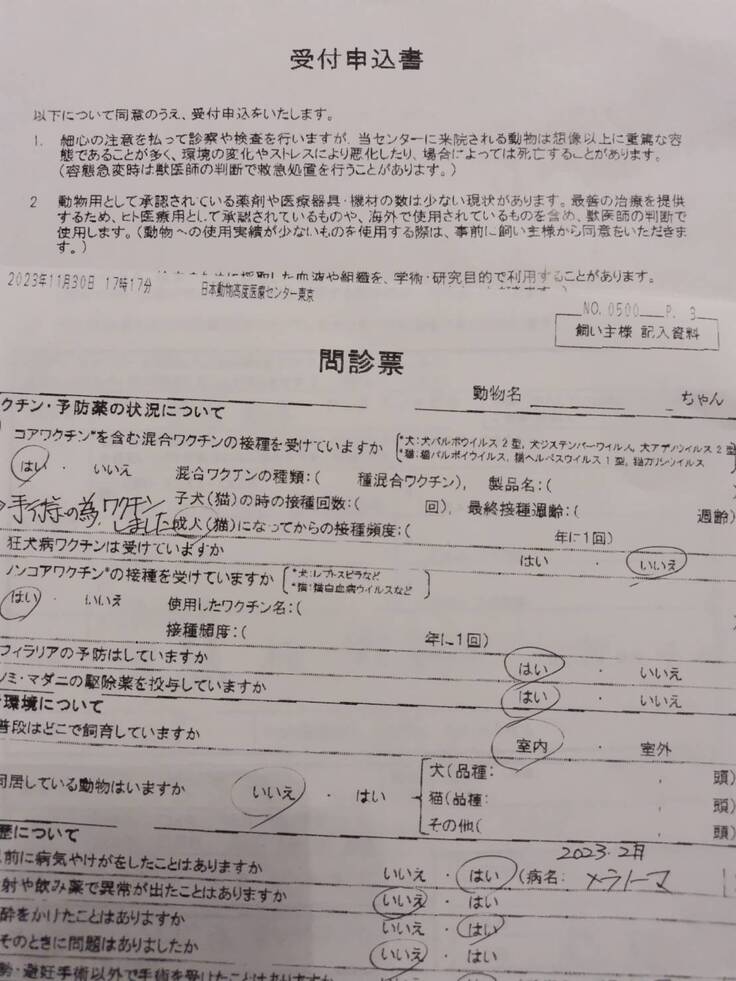 受付申込書
以下について同意のうえ、受付申込をいたします。
1. 細心の注意を払って診察や検査を行いますが、当センターに来院される動物は想像以上に重篤な容
態であることが多く、環境の変化やストレスにより悪化したり、場合によっては死亡することがあります。
(容態急変時は獣医師の判断で救急処置を行うことがあります。)
2 動物用として承認されている薬剤や医療器具・機材の数は少ない現状があります。最善の治療を提供
するため、ヒト医療用として承認されているものや、海外で使用されているものを含め、獣医師の判断で
使用します。(動物への使用実績が少ないものを使用する際は、事前に飼い主様から同意をいただきま
す。)
血液や組織を、学術・研究目的で利用することがあります。
2023年11月30日 17時17分 日本動物高度医療センター東京
NO. 0500 P. 3
飼い主様 記入資料
問診票
動物名 ちゃん
クチン・予防薬の状況について
コアワクチン*を含む混合ワクチンの接種を受けていますか
*犬:犬パルボウイルス2型, 犬ジステンパーウイルス, 犬アデノウイルス2型
*猫:猫パルボイウイルス, 猫ヘルペスウイルス1型, 猫カリシウイルス
はい ・ いいえ 混合ワクチンの種類:( 種混合ワクチン), 製品名:(
子犬(猫)の時の接種回数:( 回), 最終接種週齢:( 週齢)
手術の為、ワクチン
しました
成犬(猫)になってからの接種頻度:( 年に1回)
狂犬病ワクチンは受けていますか はい ・ いいえ
ノンコアワクチン*の接種を受けていますか
*犬:レプトスピラなど
*猫:猫白血病ウイルスなど
はい ・ いいえ 使用したワクチン名:(
接種頻度:( 年に1回)
フィラリアの予防はしていますか はい ・ いいえ
ノミ・マダニの駆除薬を投与していますか はい ・ いいえ
環境について
普段はどこで飼育していますか 室内 ・ 室外
同居している動物はいますか いいえ ・ はい
犬(品種: , 頭)
猫(品種: , 頭)
その他( , 頭)
歴について
2023.2月
前に病気やけがをしたことはありますか いいえ ・ はい (病名: メラノーマ
射や飲み薬で異常が出たことはありますか いいえ ・ はい
酔をかけたことはありますか いいえ ・ はい
そのときに問題はありましたか いいえ ・ はい
勢・避妊手術以外で手術を受けたことはありますか